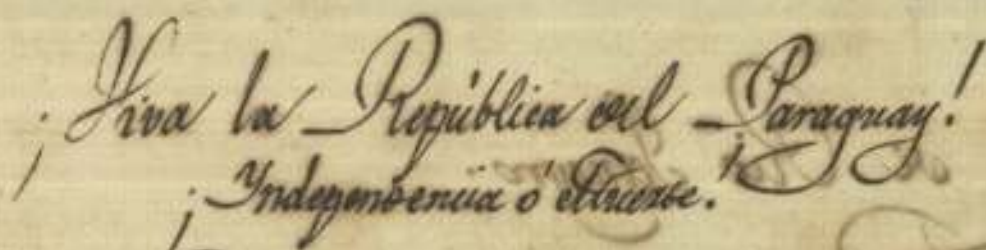 ¡Viva la República del Paraguay!
¡Yndependencia ó Muerte!